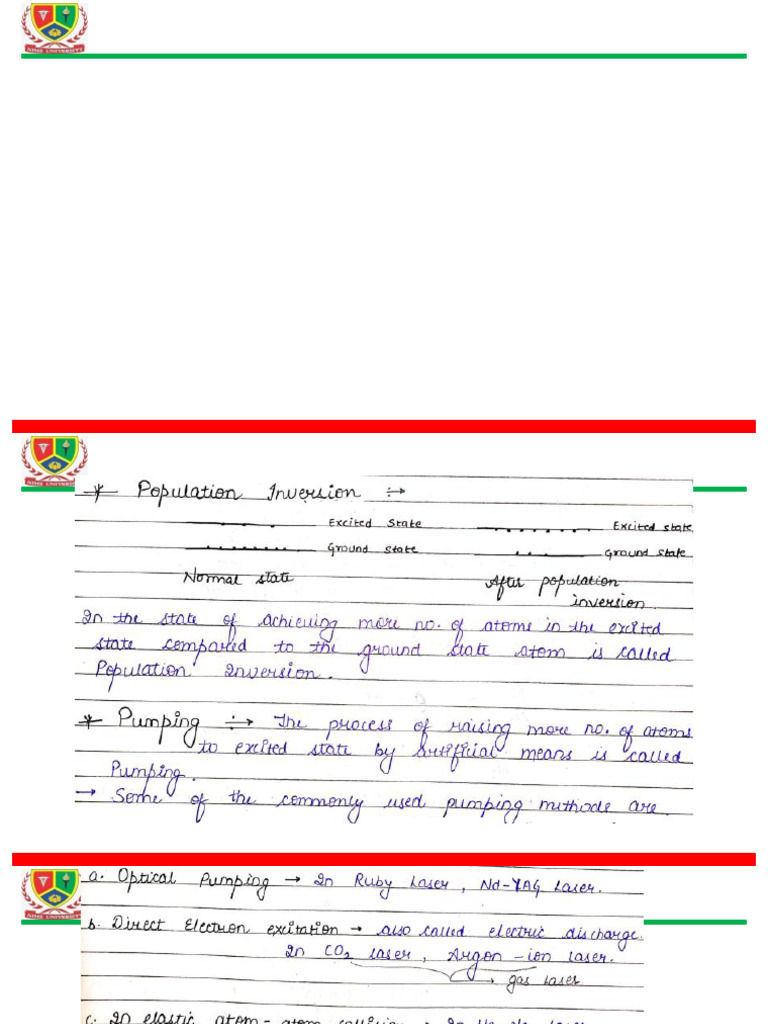 NIMS UNIVERSITY
NIMS UNIVERSITY
* Population Inversion :→
Excited State Excited state
Ground state Ground state
Normal state After population
inversion.
In the state of achieving more no. of atoms in the excited
state compared to the ground state atom is called
Population Inversion.
* Pumping :→ The process of raising more no. of atoms
to excited state by Artificial means is called
Pumping.
→ Some of the commonly used pumping methods are.
NIMS UNIVERSITY
a. Optical Pumping → In Ruby Laser, Nd-YAG Laser.
b. Direct Electron excitation → also called electric discharge
In CO2 laser, Argon-ion laser.
→ gas laser
c. In elastic atom-atom collision → In He-Ne laser